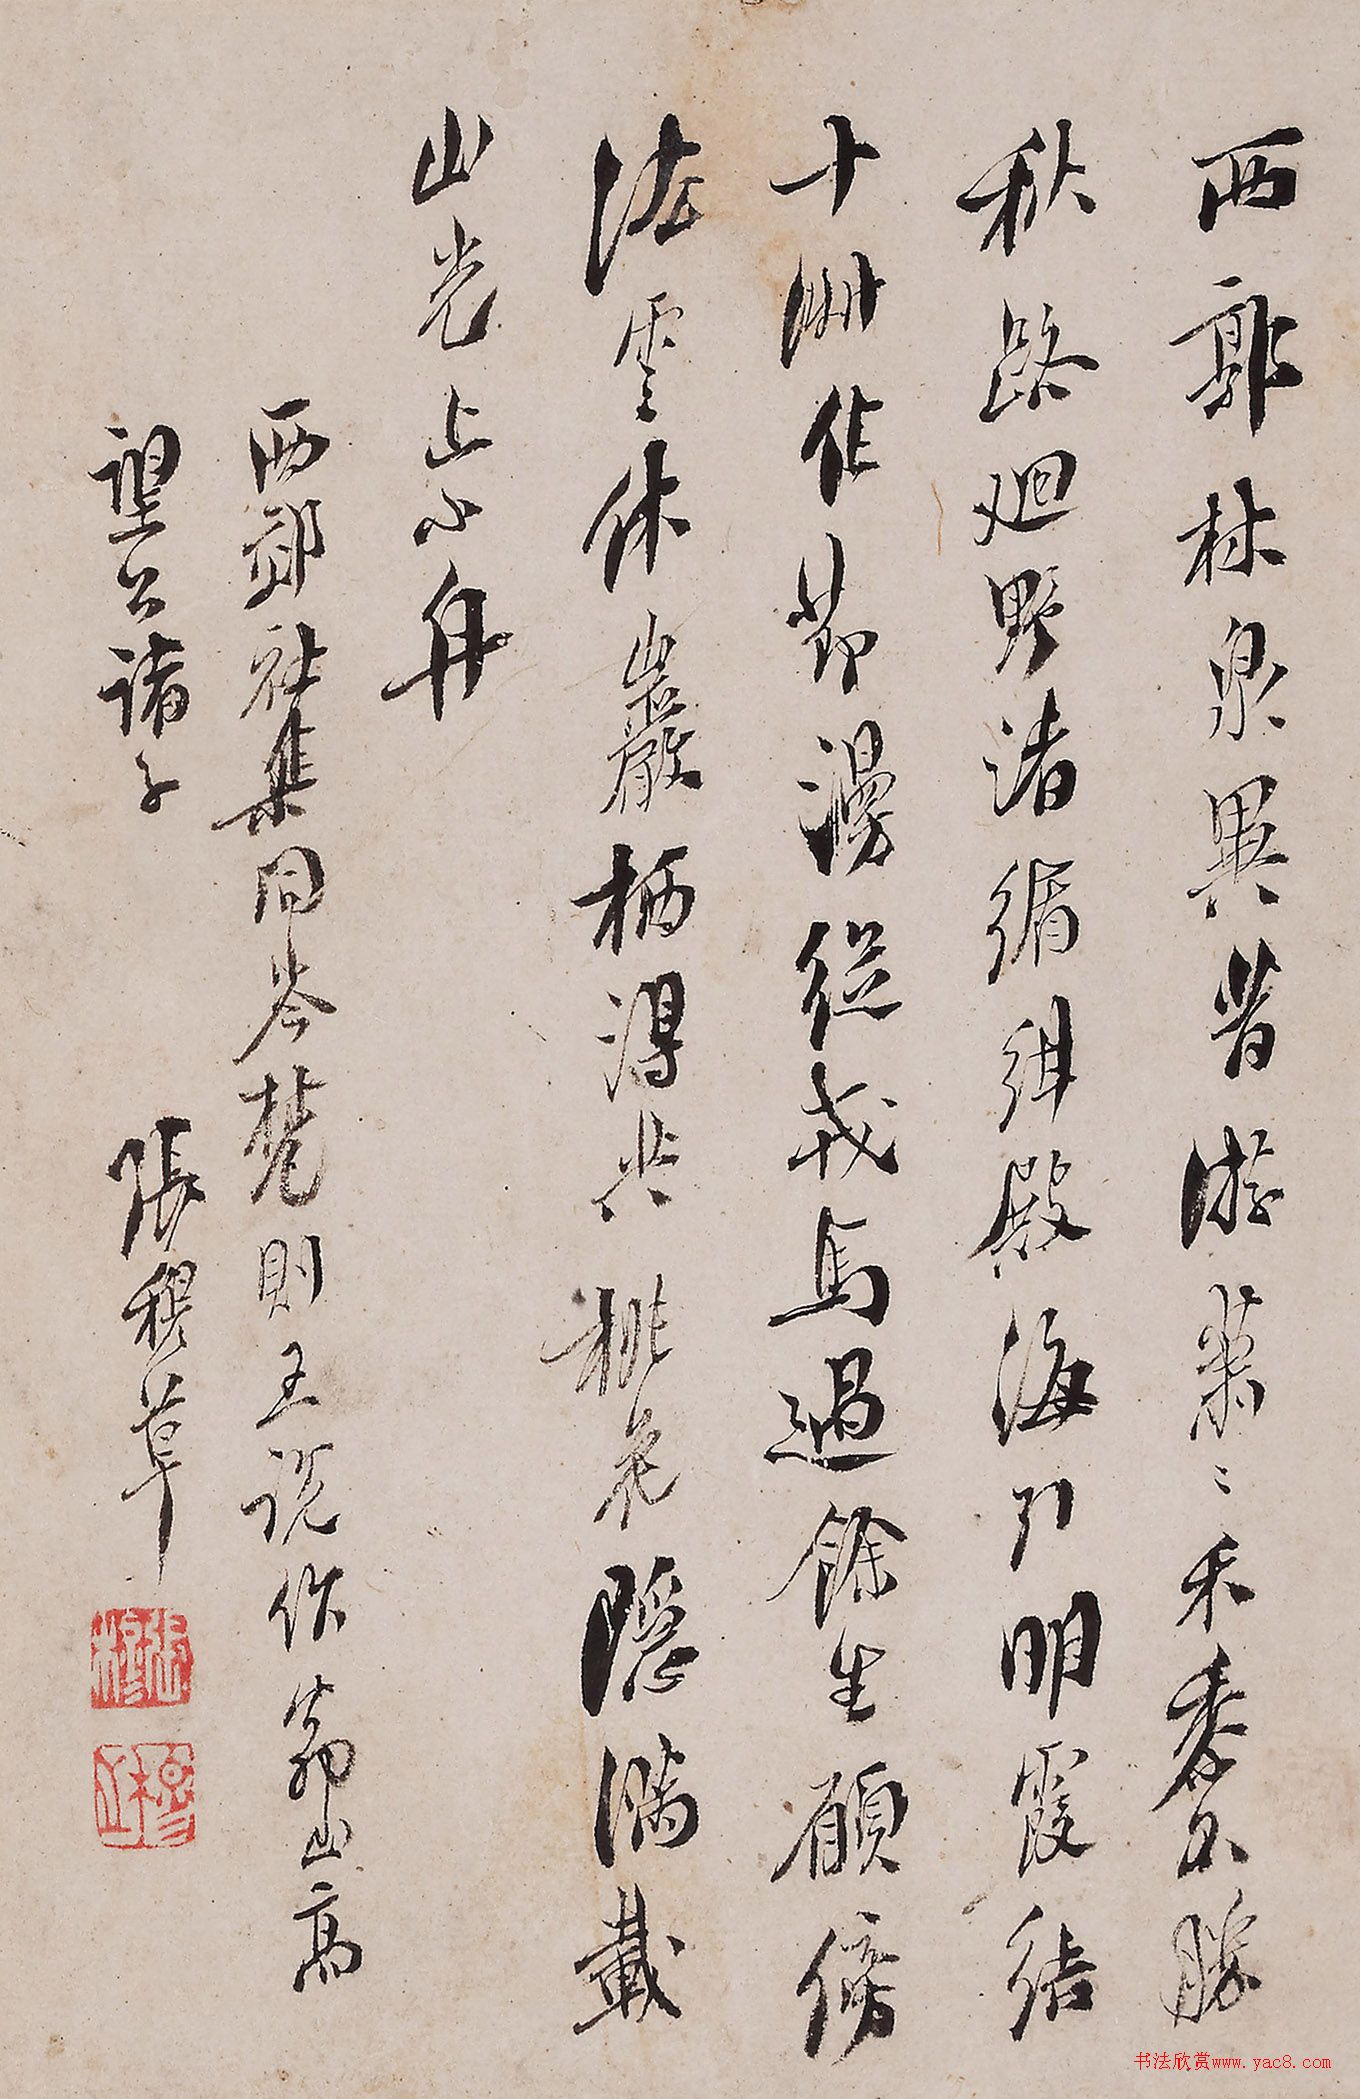 西郭林泉異昔游蕭〻禾黍不勝
秋路廻野渚循紺殿海引明霞結
十洲佳節漫從戎馬過餘生願傍
法雲休巖栖得共桃花隱滿載
山光上小舟
西郊社集同岑梵則王說作翁山高
望公諸子
張穆草
书法欣赏www.yac8.com